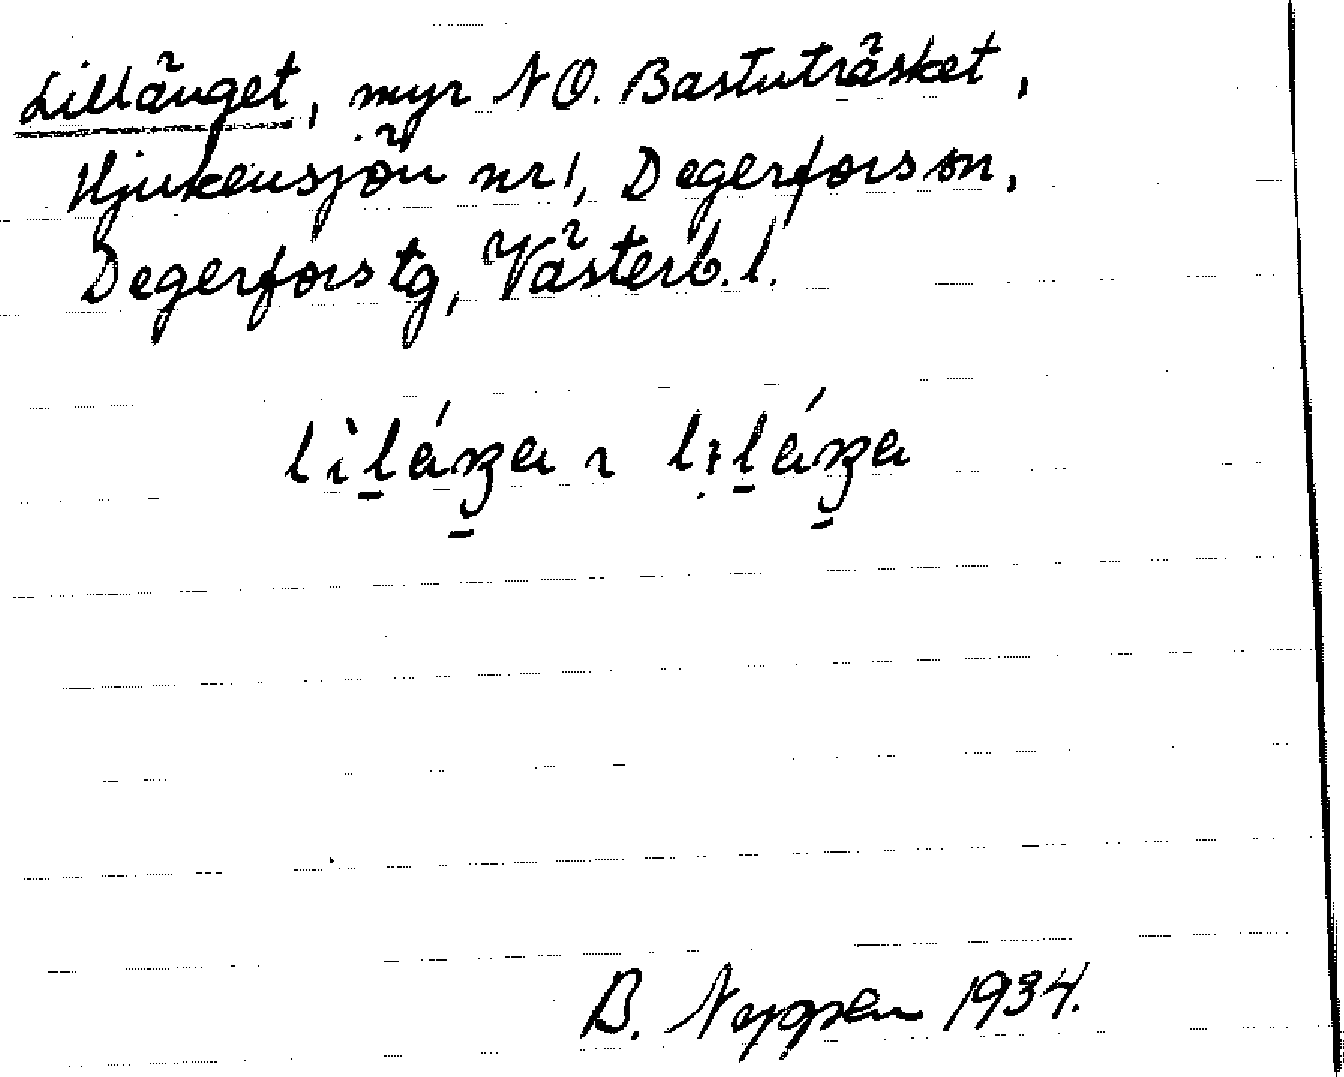 Lillänget, myr NO. Bastuträsket,
Hjukensjön nr 1, Degerfors sn,
Degerfors tg, Västerb. l.
B. Nyppen 1934.